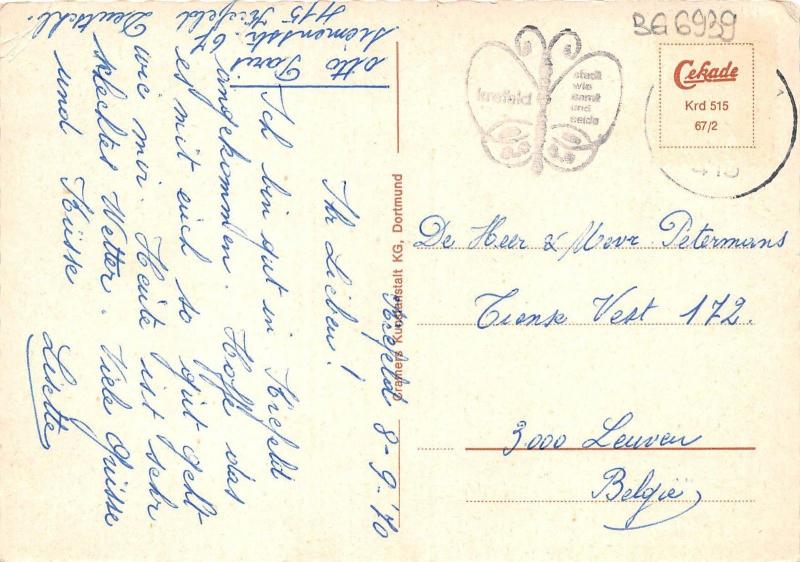 Otto Paris
Siemensstr. 67
415 Krefeld
Deutschl.
Krefeld 8-9-70
Ihr Lieben!
Ich bin gut in Krefeld
angekommen. Hoffe das
es mit euch so gut geht
wie mir. Heute ist sehr
schlechtes Wetter. Viele Grüsse
und Küsse
Lisette
Cramers Kunstanstalt KG, Dortmund
krefeld
stadt
wie
samt
und
seide
BG6939
Cekade
Krd 515
67/2
415
De Heer & Mevr. Petermans
Tiense Vest 172.
3000 Leuven
België